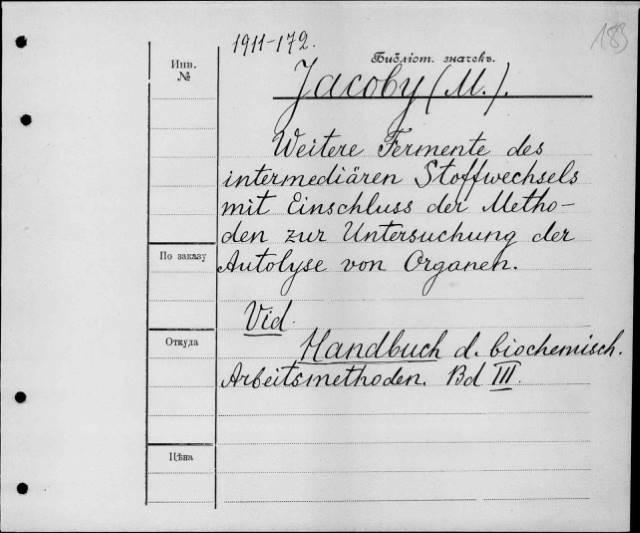 1911-172.
183
Библіот. значекъ.
Jacoby (M.).
Инв.
№
Weitere Fermente des
intermediären Stoffwechsels
mit Einschluss der Metho-
den zur Untersuchung der
По заказу
Autolyse von Organen.
Vid.
Откуда
Handbuch d. biochemisch.
Arbeitsmethoden. Bd III.
Цѣна